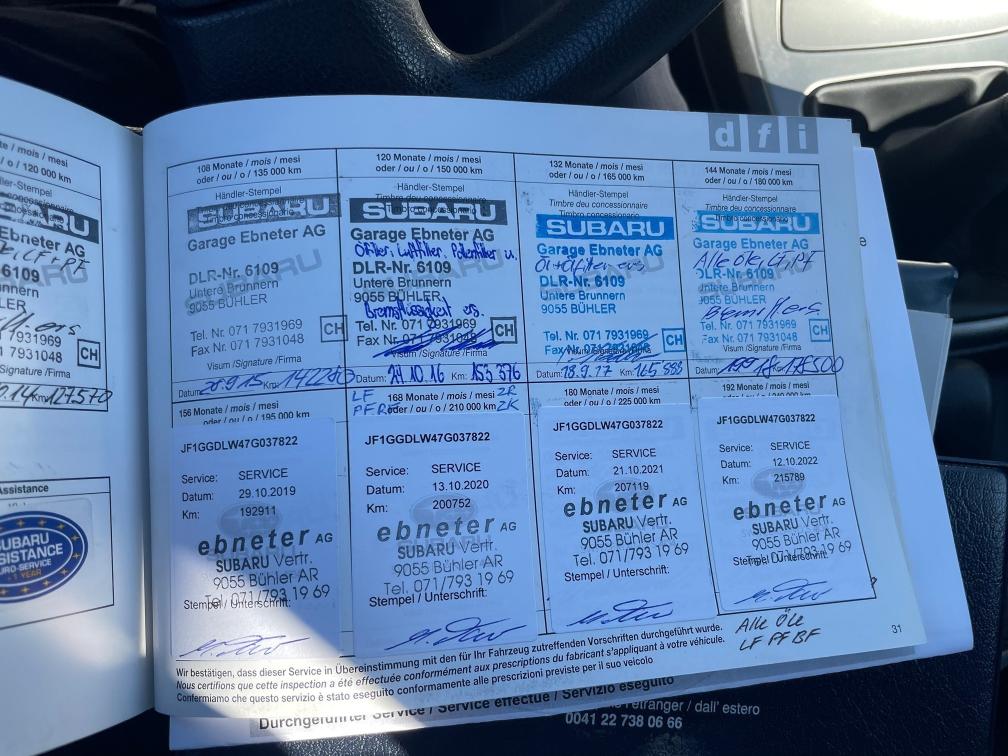 te / mois / mesi
/ o / 120 000 km
SUBARU
Ebneter AG
6109
unnern
LER
7931969
7931048
CH
Assistance
SUBARU
ASSISTANCE
EURO-SERVICE
1 YEAR
dfi
108 Monate / mois / mesi
oder / ou / o / 135 000 km
Händler-Stempel
Timbre du concessionnaire
Timbro concessionario
SUBARU
Garage Ebneter AG
DLR-Nr. 6109
Untere Brunnern
9055 BÜHLER
Tel. Nr. 071 7931969
Fax Nr. 071 7931048
CH
Visum /Signature /Firma
Datum: 28.9.15 Km:
120 Monate / mois / mesi
oder / ou / o / 150 000 km
Händler-Stempel
Timbre du concessionnaire
Timbro concessionario
SUBARU
Garage Ebneter AG
Ölfilter, Luftfilter, Pollenfilter u.
DLR-Nr. 6109
Untere Brunnern
9055 BÜHLER
Bremsflüssigkeit ers.
Tel. Nr. 071 7931969
Fax Nr. 071 7931048
CH
Visum /Signature /Firma
Datum: 24.10.16 Km: 153 376
132 Monate / mois / mesi
oder / ou / o / 165 000 km
Händler-Stempel
Timbre du concessionnaire
Timbro concessionario
SUBARU
Garage Ebneter AG
DLR-Nr. 6109
Untere Brunnern
9055 BÜHLER
Tel. Nr. 071 7931969
Fax Nr. 071 7931048
CH
Visum /Signature /Firma
Datum: 18.9.17 Km:
144 Monate / mois / mesi
oder / ou / o / 180 000 km
Händler-Stempel
Timbre du concessionnaire
Timbro concessionario
SUBARU
Garage Ebneter AG
Alle Öle, LF, PF
DLR-Nr. 6109
Untere Brunnern
9055 BÜHLER
Tel. Nr. 071 7931969
Fax Nr. 071 7931048
CH
Visum /Signature /Firma
Datum: Km: 178500
156 Monate / mois / mesi
oder / ou / o / 195 000 km
JF1GGDLW47G037822
Service: SERVICE
Datum: 29.10.2019
Km: 192911
ebneter AG
SUBARU Vertr.
9055 Bühler AR
Tel. 071/793 19 69
Stempel / Unterschrift:
LF 168 Monate / mois / mesi 2R
PF oder / ou / o / 210 000 km 2K
JF1GGDLW47G037822
Service: SERVICE
Datum: 13.10.2020
Km: 200752
ebneter AG
SUBARU Vertr.
9055 Bühler AR
Tel. 071/793 19 69
Stempel / Unterschrift:
180 Monate / mois / mesi
oder / ou / o / 225 000 km
JF1GGDLW47G037822
Service: SERVICE
Datum: 21.10.2021
Km: 207119
ebneter AG
SUBARU Vertr.
9055 Bühler AR
Tel. 071/793 19 69
Stempel / Unterschrift:
192 Monate / mois / mesi
JF1GGDLW47G037822
Service: SERVICE
Datum: 12.10.2022
Km: 215789
ebneter AG
SUBARU Vertr.
9055 Bühler AR
Tel. 071/793 19 69
Stempel / Unterschrift:
Alle Öle
LF PF BF
31
Wir bestätigen, dass dieser Service in Übereinstimmung mit den für Ihr Fahrzeug zutreffenden Vorschriften durchgeführt wurde.
Nous certifions que cette inspection a été effectuée conformément aux prescriptions du fabricant s'appliquant à votre véhicule.
Confermiamo che questo servizio è stato eseguito conformamente alle prescrizioni previste per il suo veicolo
Durchgeführter Service / Service effectué / Servizio eseguito
l'étranger / dall' estero
0041 22 738 06 66